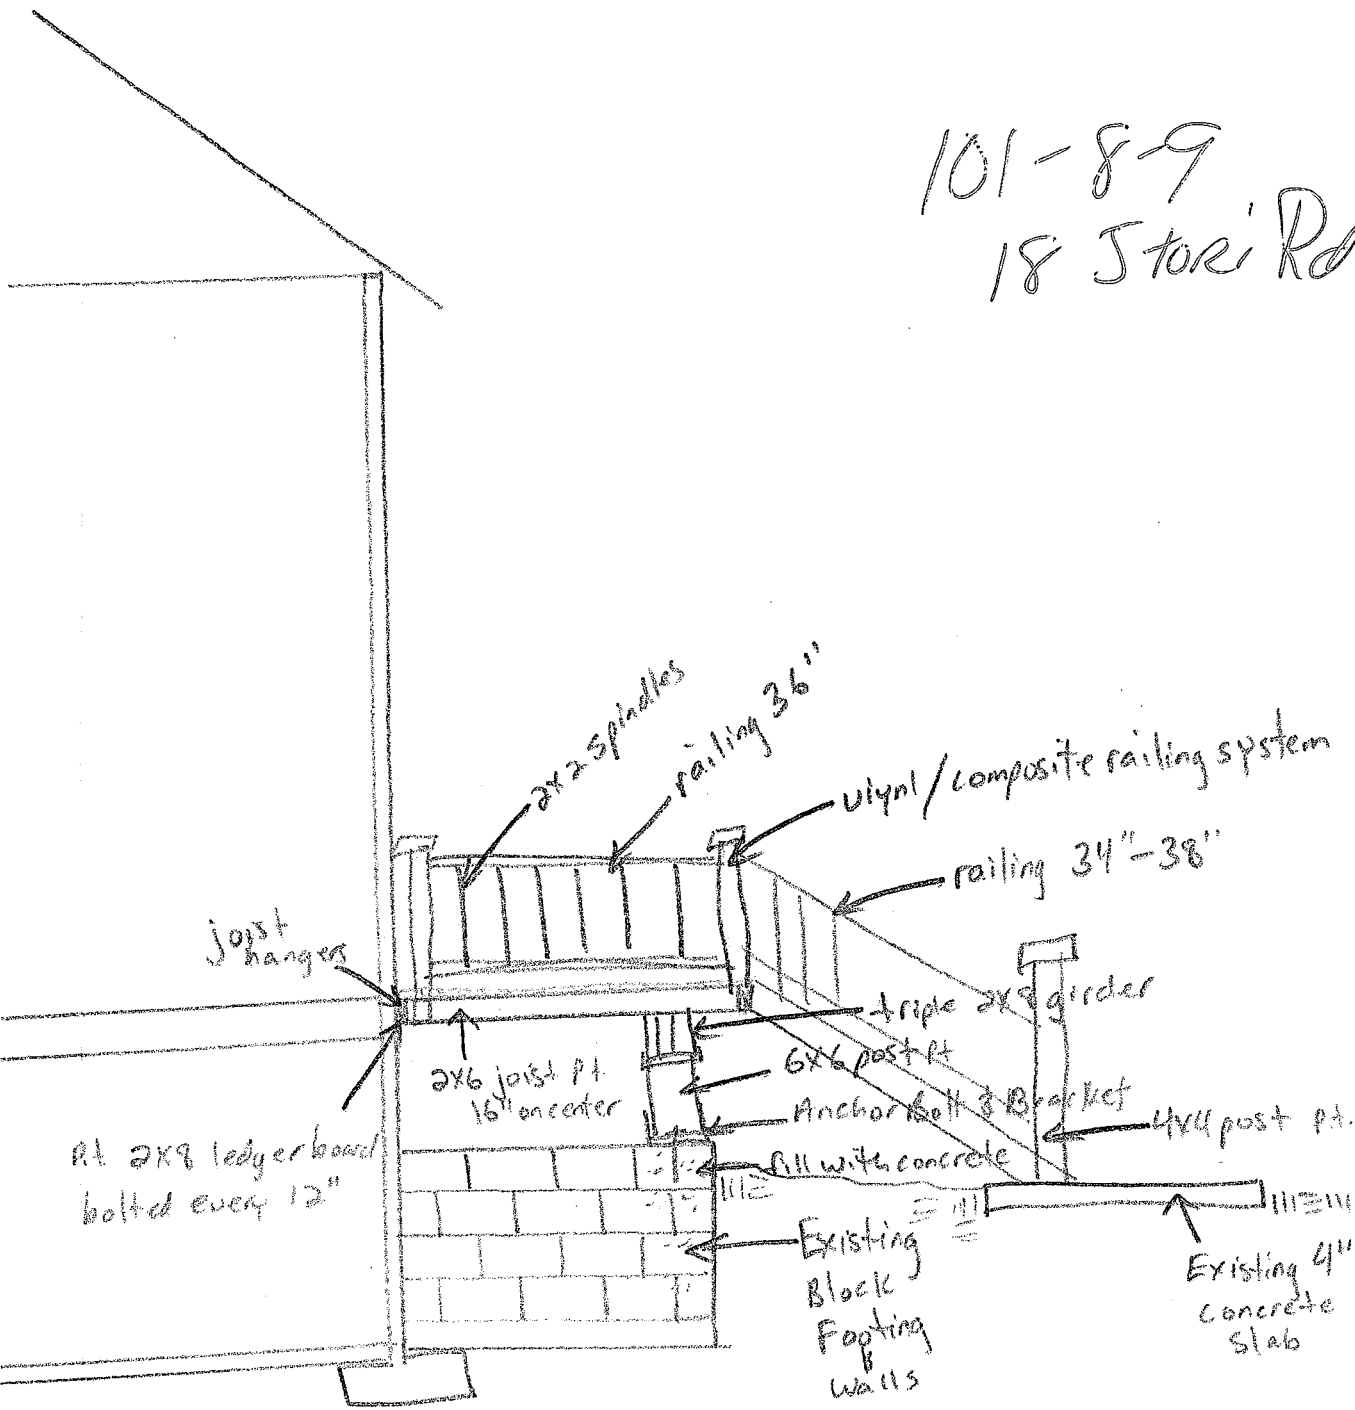 101-8-9
18 Stori Rd
2x2 spindles
railing 36"
viynl/composite railing system
railing 34"-38"
joist
hangers
triple 2x8 girder
6x6 post pt
2x6 joist p.t.
16" on center
Anchor Bolt & Bracket
4x4 post p.t.
P.t. 2x8 ledgerboard
bolted every 12"
fill with concrete
Existing
Block
Footing
&
walls
Existing 4"
concrete
slab